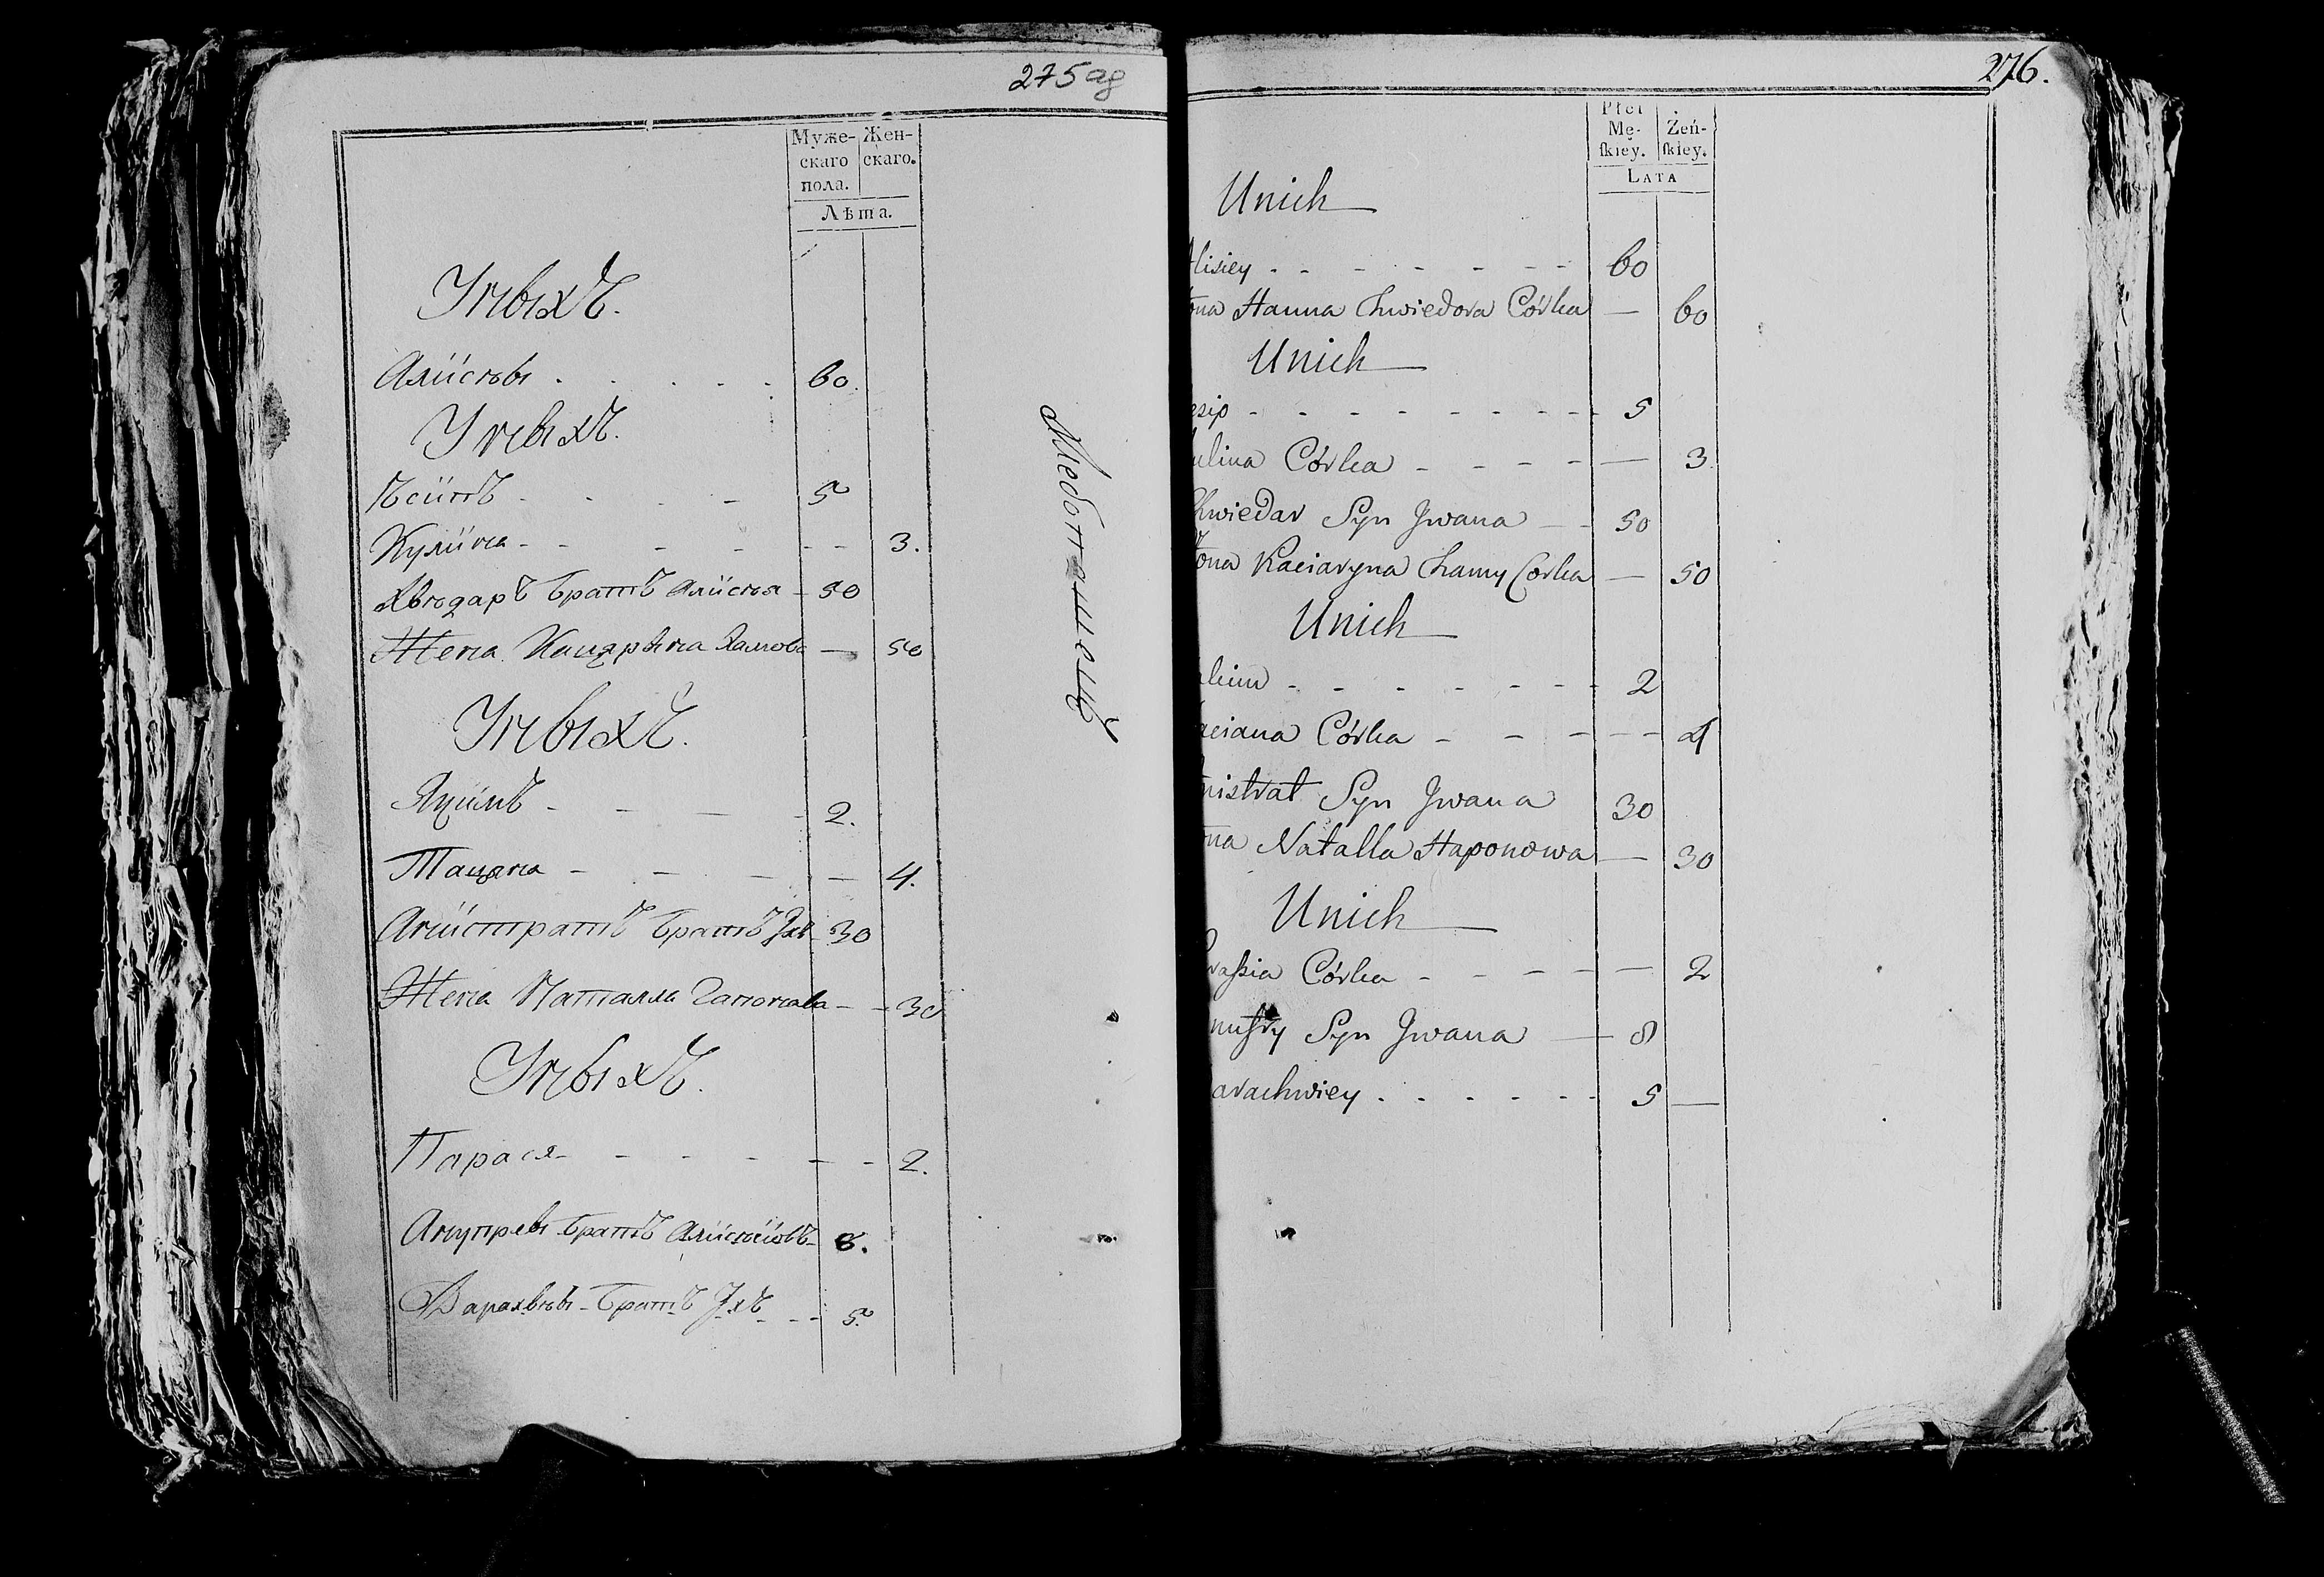 275 ад
Муже-
скаго
пола.
Жен-
скаго.
Лѣта.
Унвыхъ.
Алисѣы . . . . . 60.
Унвыхъ.
5
Кулина - - - - - - 3.
Хвѣдаръ братъ Алисѣя - 50
Жена Кацярына Хамова — 50
Унвыхъ.
Яцимъ - - — - 2.
Тацяна - - - — 4.
Анистратъ братъ Ихъ - 30
Жена Наталла Гапонова - - 30
Унвыхъ.
Парася - - - - - - 2.
Анупрей братъ 8.
Варахвѣй - братъ Ихъ - - - 5.
276.
Płci
Mę-
ſkiey.
Żeń-
ſkiey.
LATA
Unich
lisiey . - - - - - - 60
ona Hanna Chwiedora Córka — 60
Unich
esip - - - - - - - - - 5
ulina Córka - - - - — 3
hwiedar Syn Jwana — - 50
ona Kaciaryna Chamy Corka — 50
Unich
- - - - - - - 2
aciana Córka - - - - - 4
nistrat Syn Jwana 30
na Natalla Haponowa — 30
Unich
raſsia Córka - - - - — 2
Syn Jwana — 8
arachwiey . . . - - - 5 —